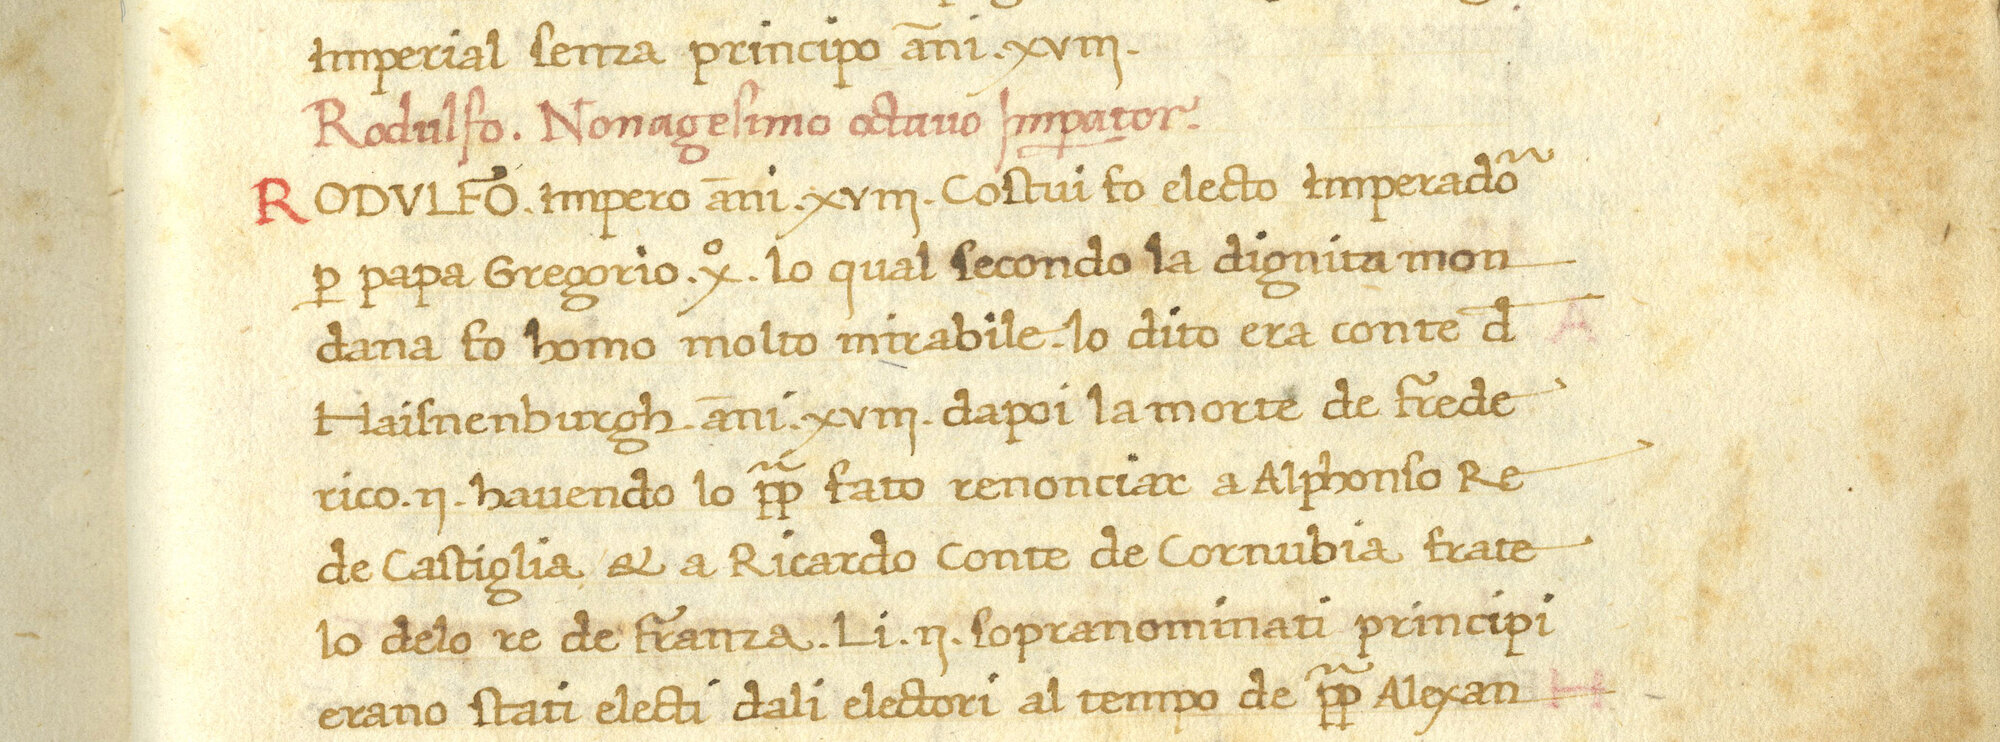 Imperial senza principo ãni .xviii.
Rodulfo. Nonagesimo octavo Impator.
RODVLFO. Impero ãni .xviii. Costui fo electo Imperador
p papa Gregorio .xº. lo qual secondo la dignita mon
dana fo homo molto mirabile. lo dito era conte d̄
Haisnenburgh. ãni .xviii. dapoi la morte de Frede
rico .ii. havendo lo pp fato renonciar a Alphonso Re
de Castiglia & a Ricardo Conte de Cornubia frate
lo delo re de franza. Li .ii. sopranominati principi
erano stati electi dali electori al tempo de pp Alexan